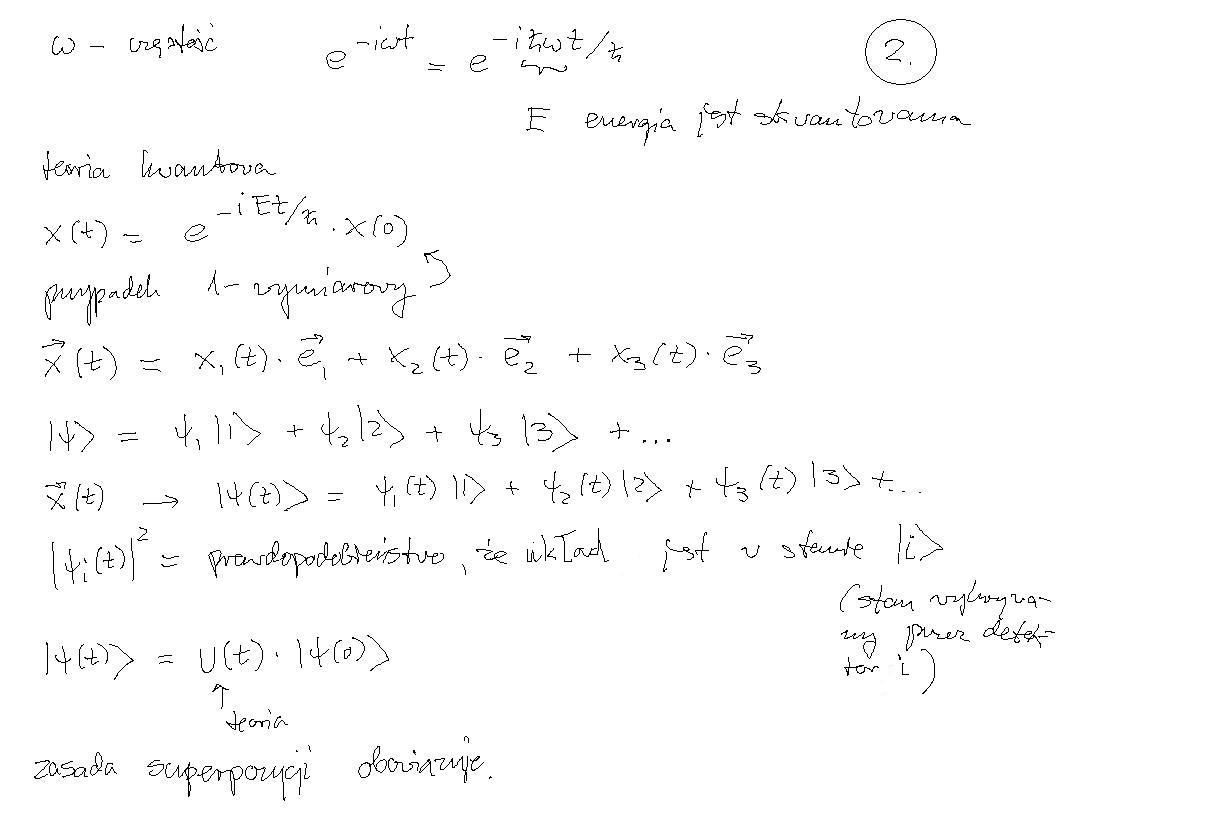 ω – częstość e^{-iωt} = e^{-iħωt/ħ} 2.
E energia jest skwantowana
teoria kwantowa
x(t) = e^{-iEt/ħ} · x(0)
przypadek 1-wymiarowy
\vec{x}(t) = x₁(t) · \vec{e}₁ + x₂(t) · \vec{e}₂ + x₃(t) · \vec{e}₃
|ψ> = ψ₁ |1> + ψ₂ |2> + ψ₃ |3> + ...
\vec{x}(t) → |ψ(t)> = ψ₁(t) |1> + ψ₂(t) |2> + ψ₃(t) |3> + ...
|ψᵢ(t)|² = prawdopodobieństwo, że układ jest w stanie |i>
(stan wykrywa-
ny przez detek-
tor i)
|ψ(t)> = U(t) · |ψ(0)>
↑
teoria
zasada superpozycji obowiązuje.